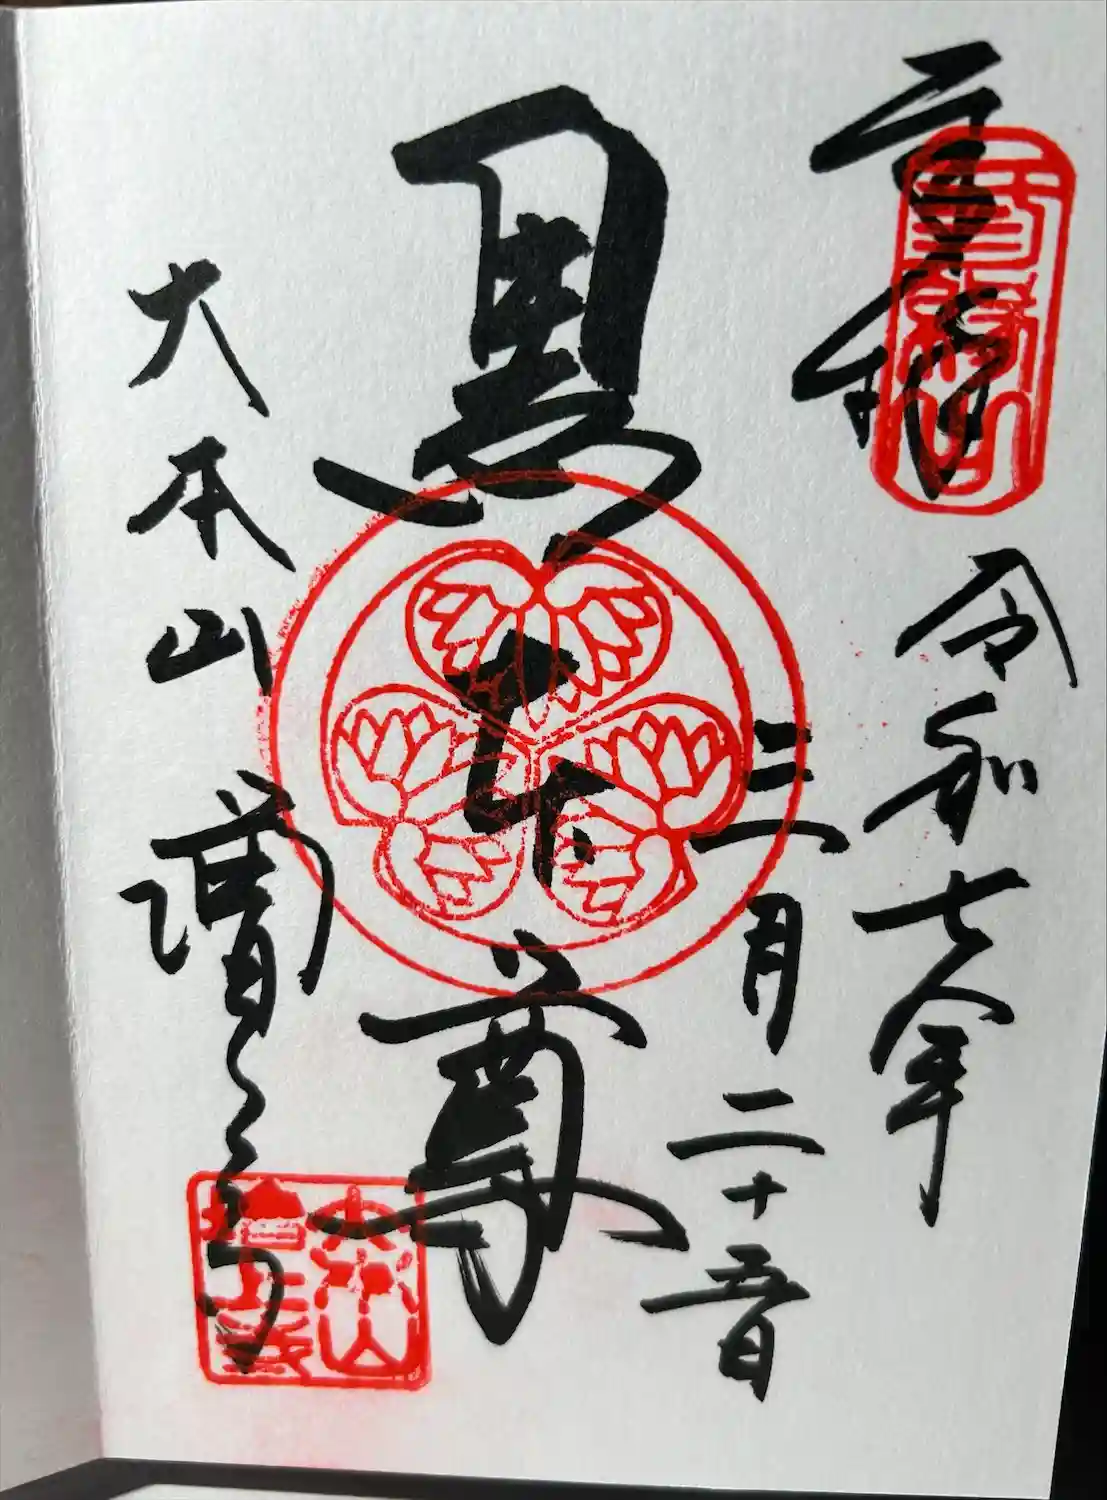 令和七年
三月二十五日
黒本尊
大本山 増上寺
大本山
増上寺